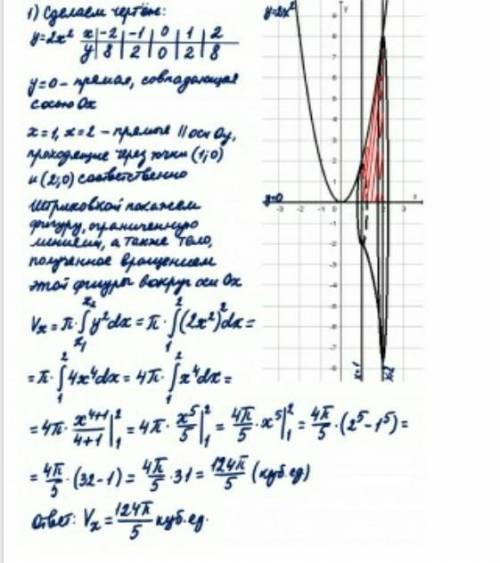 1) Сделаем чертёж:
y=2x² x|-2|-1|0|1|2
y|8|2|0|2|8
y=0 - прямая, совпадающая
с осью Ox
x=1, x=2 - прямые || оси Oy,
проходящие через точки (1;0)
и (2;0) соответственно
Штриховкой покажем
фигуру, ограниченную
линиями, а также тело,
полученное вращением
этой фигуры вокруг оси Ox
Vx = π·∫x₁x₂ y²dx = π·∫₁²(2x²)²dx =
= π·∫₁² 4x⁴dx = 4π·∫₁² x⁴dx =
= 4π·x⁴⁺¹/4+1|₁² = 4π·x⁵/5|₁² = 4π/5·x⁵|₁² = 4π/5·(2⁵-1⁵) =
= 4π/5·(32-1) = 4π/5·31 = 124π/5 (куб.ед)
Ответ: Vx = 124π/5 куб.ед.
y=2x²
y
y=0
x=1
x=2